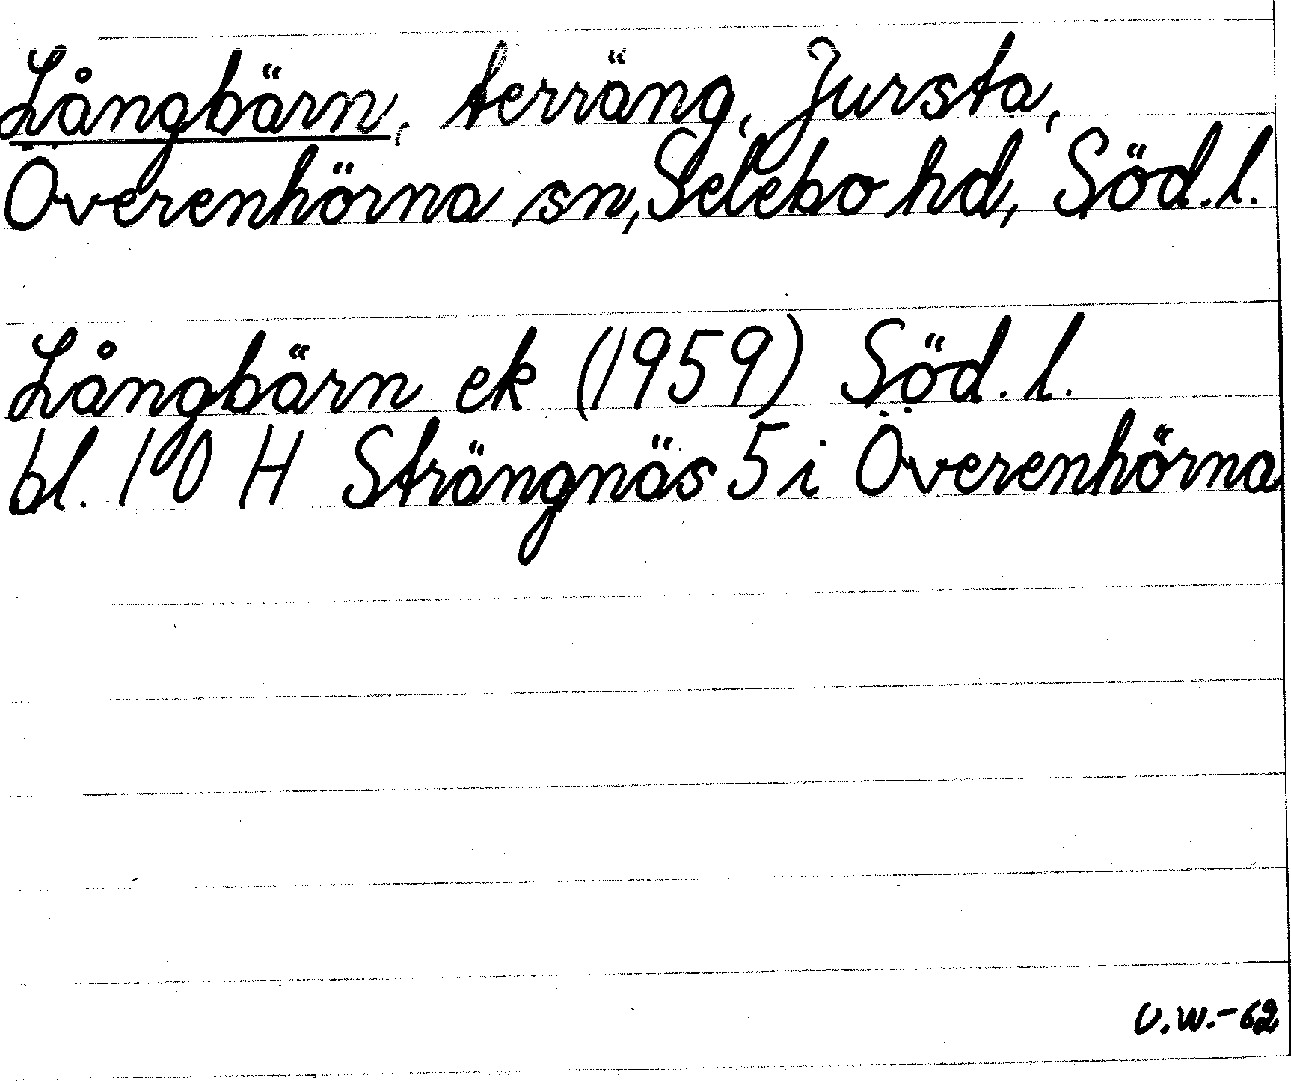 Långbärn, terräng, Jursta,
Överenhörna sn, Selebo hd, Söd.l.
Långbärn ek (1959) Söd.l.
bl. 10 H Strängnäs 5 i Överenhörna
U.W.-62